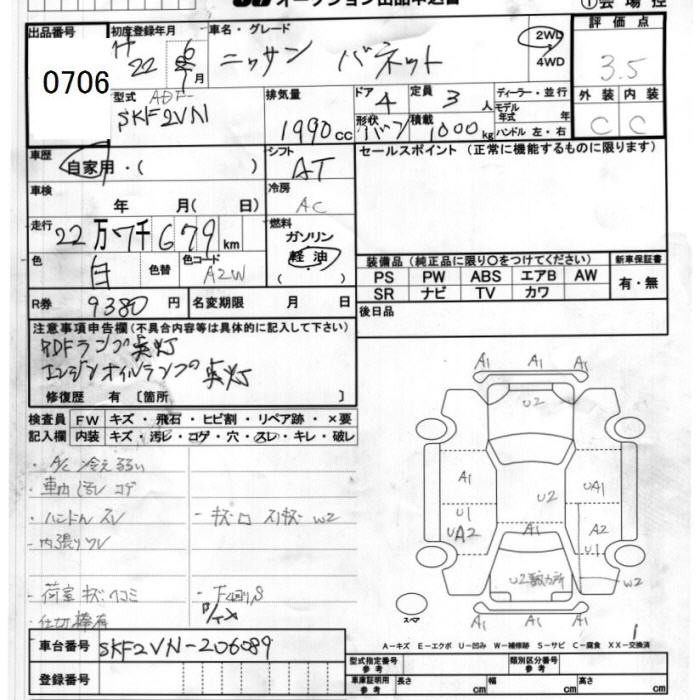 オークション出品申込書 ①会場控
出品番号 初度登録年月 車名・グレード 2WD 評価点
22 6月 ニッサン バネット 4WD 3.5
0706
型式 ADF- 排気量 ドア 定員 ディーラー・並行 外装 内装
SKF2VN 1990cc 4 3人 モデル年式 年 C C
形状 バン 積載 1000kg ハンドル 左・右
車歴 シフト セールスポイント (正常に機能するものに限ります)
自家用・( ) AT
車検 冷房
年 月( 日) AC
走行 22万7千679km 燃料
ガソリン
色 白 色替 色コード A2W 軽油 ( )
装備品 (純正品に限り○をつけてください) 新車保証書
PS PW ABS エアB AW 有・無
SR ナビ TV カワ
R券 9380円 名変期限 月 日 後日品
注意事項申告欄(不具合内容等は具体的に記入して下さい)
PDFランプ点灯
エンジンオイルランプ点灯
修復歴 有 〔箇所 〕
検査員 FW キズ・飛石・ヒビ割・リペア跡・×要
記入欄 内装 キズ・汚レ・コゲ・穴・スレ・キレ・破レ
・A/C 冷え弱い
・車内 汚レ コゲ
・ハンドル スレ ・キズ W2
・内張り
・荷室 キズ ヘコミ
・仕切棒有
A1 A1 A1
U2
A1 U2 UA1
U1 A1 A2
UA2 U1
U2 W2
A1 A1 A1
スペア
A-キズ E-エクボ U-凹み W-補修跡 S-サビ C-腐食 XX-交換済
車台番号 SKF2VN-206089
型式指定番号 参考 類別区分番号 参考
登録番号 車庫証明用 参考 長さ cm 幅 cm 高さ cm